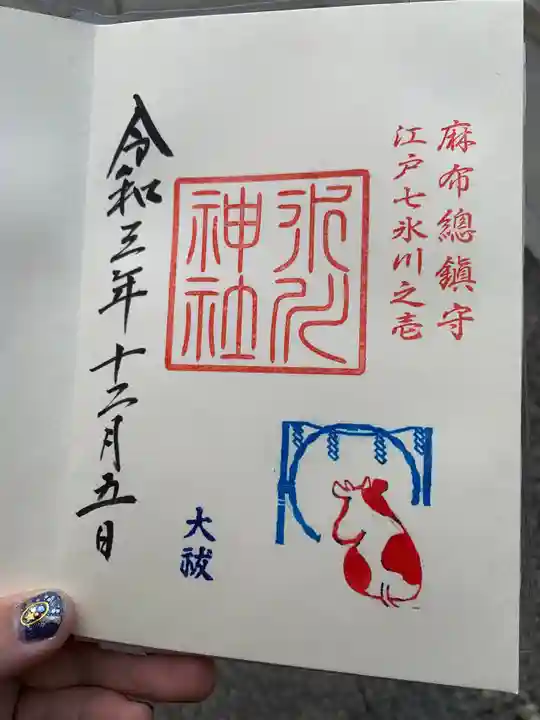 麻布總鎮守
江戸七氷川之壱
氷川
神社
大祓
令和三年十二月五日